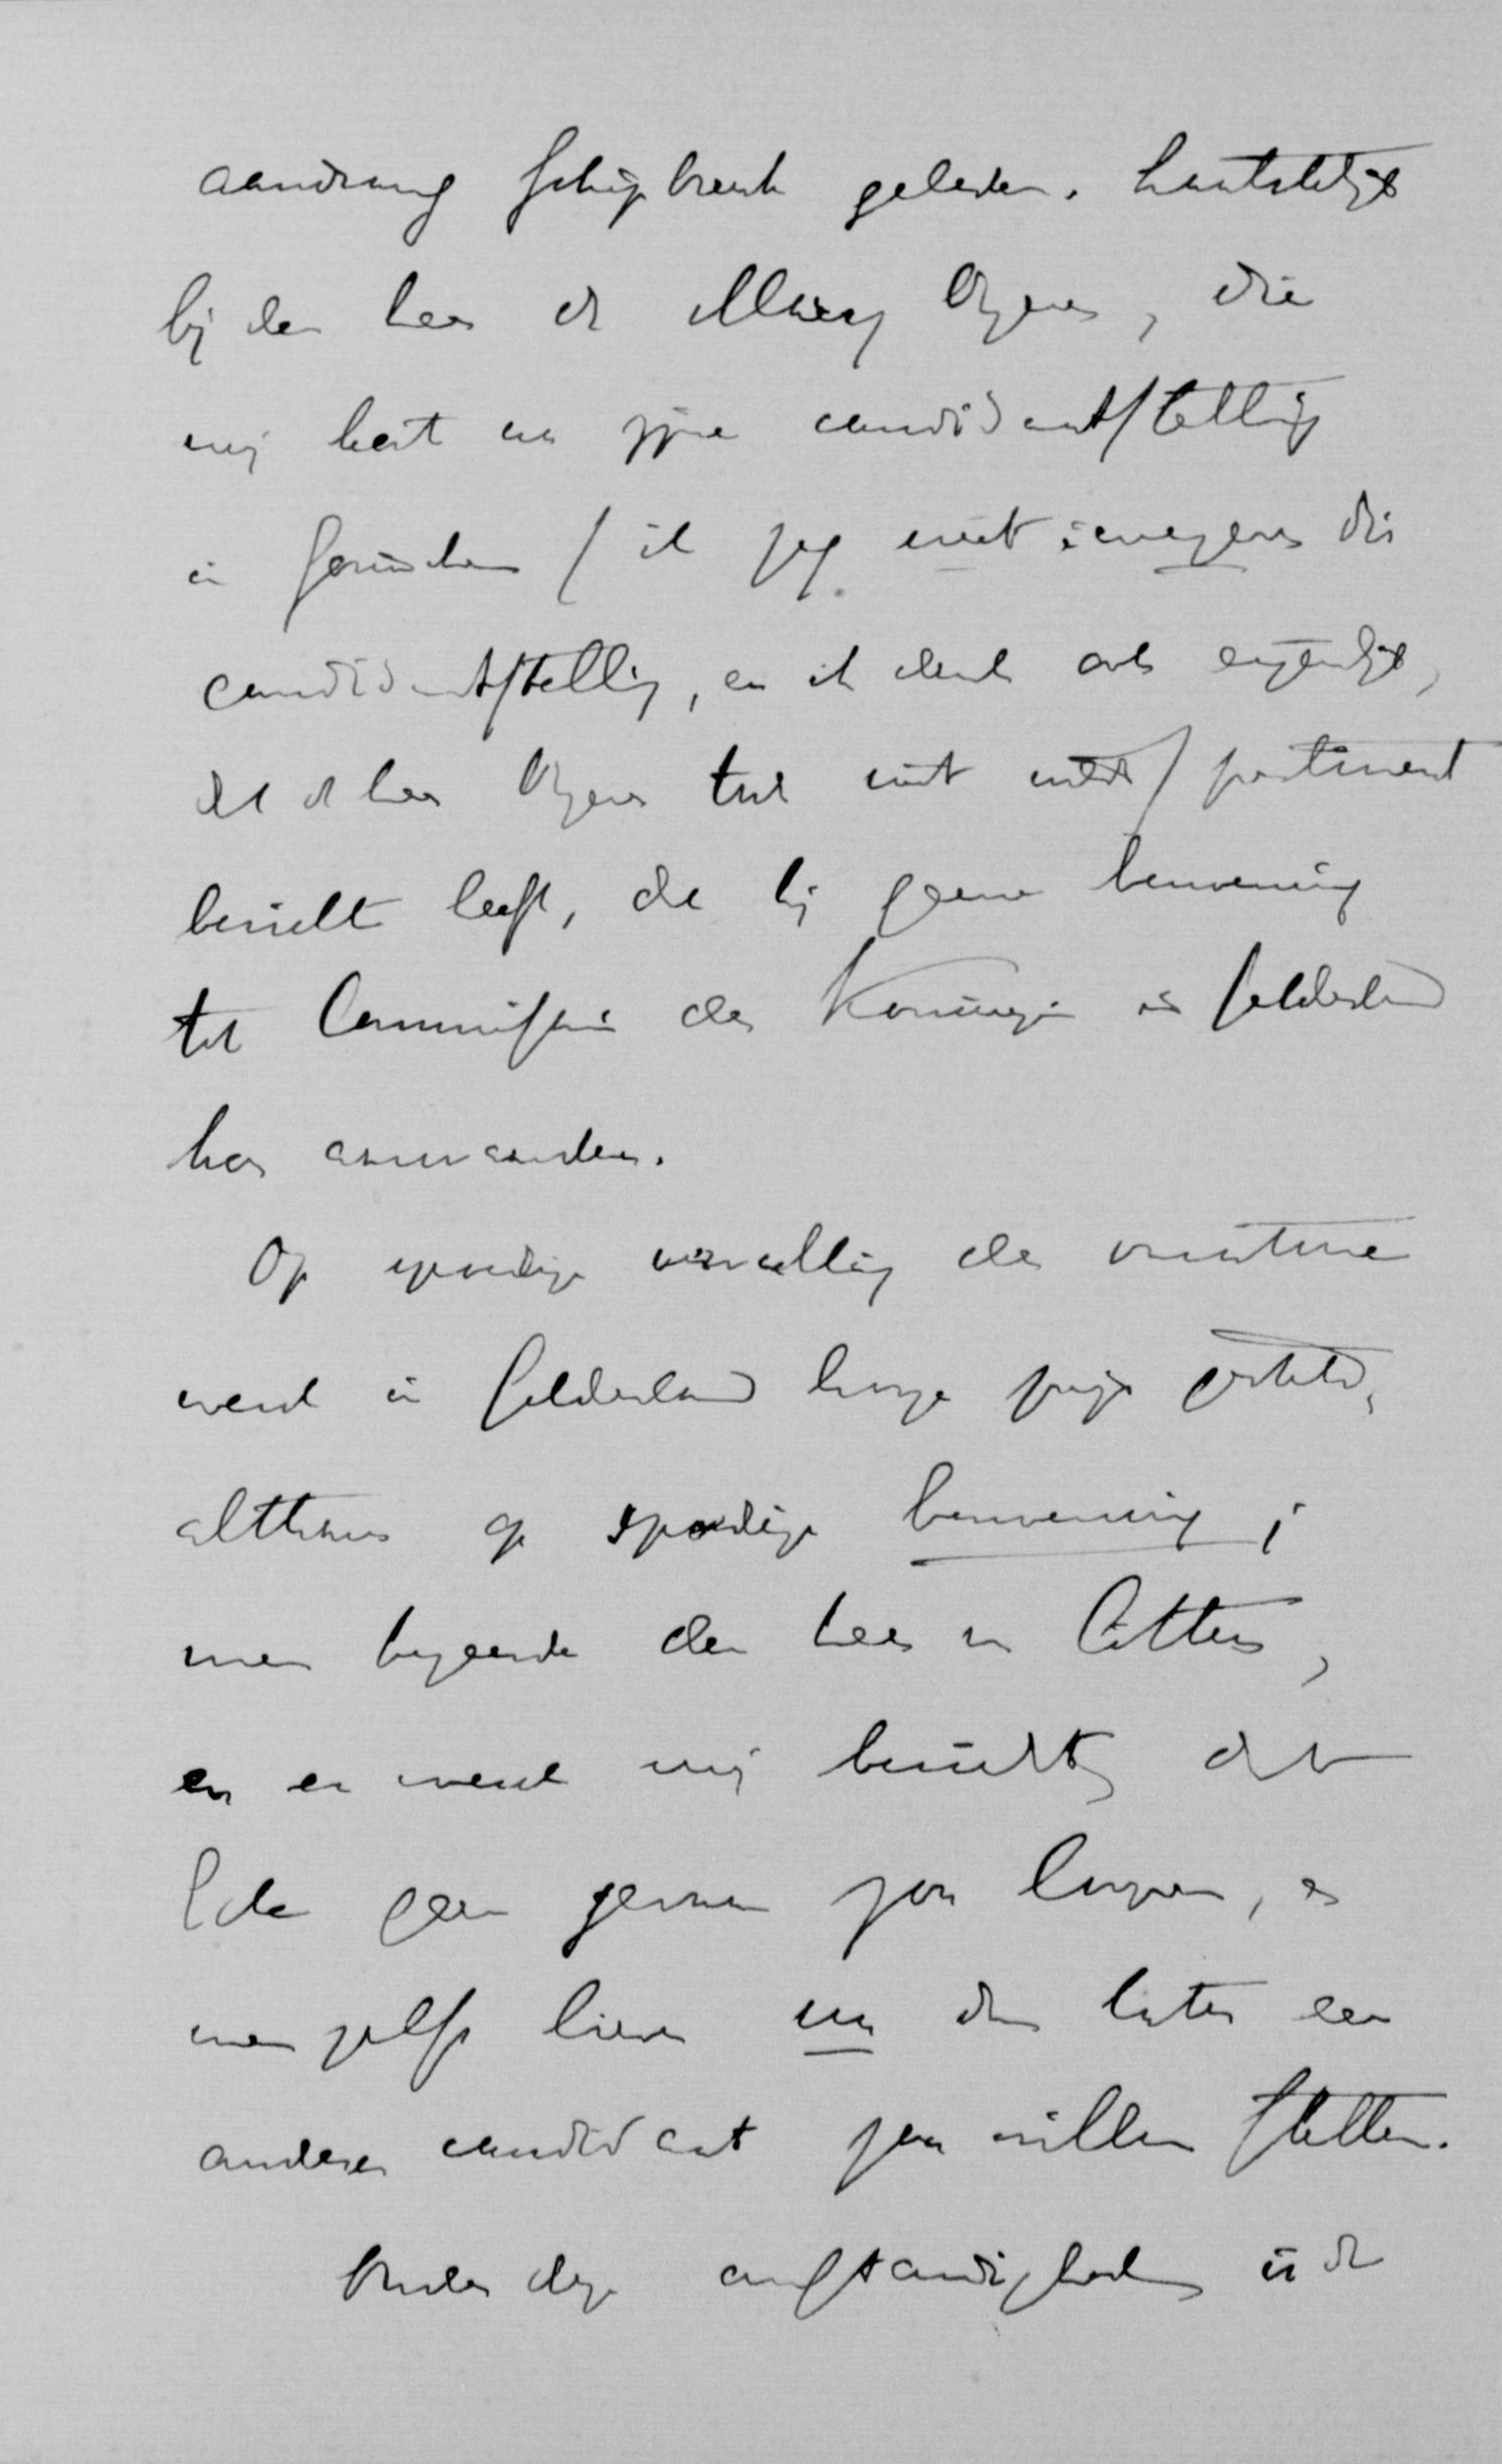 aandrang schipbreuk geleden. Laatstelijk
bij den heer de Marez Oyens, die
mij heeft na zijne candidaatstelling
in Gorinchem / ik zeg niet: wegens die
candidaatstelling, en ik denk ook eigenlijk,
dat de heer Oyens tot niet / pertinent
bericht heeft, dat hij geene benoeming
tot Commissaris der Koningin in Gelderland
kan aanvaarden.
Op spoedige vervulling der vacature
werd in Gelderland hooge prijs gesteld,
althans op spoedige benoeming;
men begeerde den heer v Citters,
en er werd mij bericht, dat
Ede geen gevaar zou loopen, en
men zelfs liever nu dan later een
anderen candidaat zou willen stellen.
Onder deze omstandigheden is de